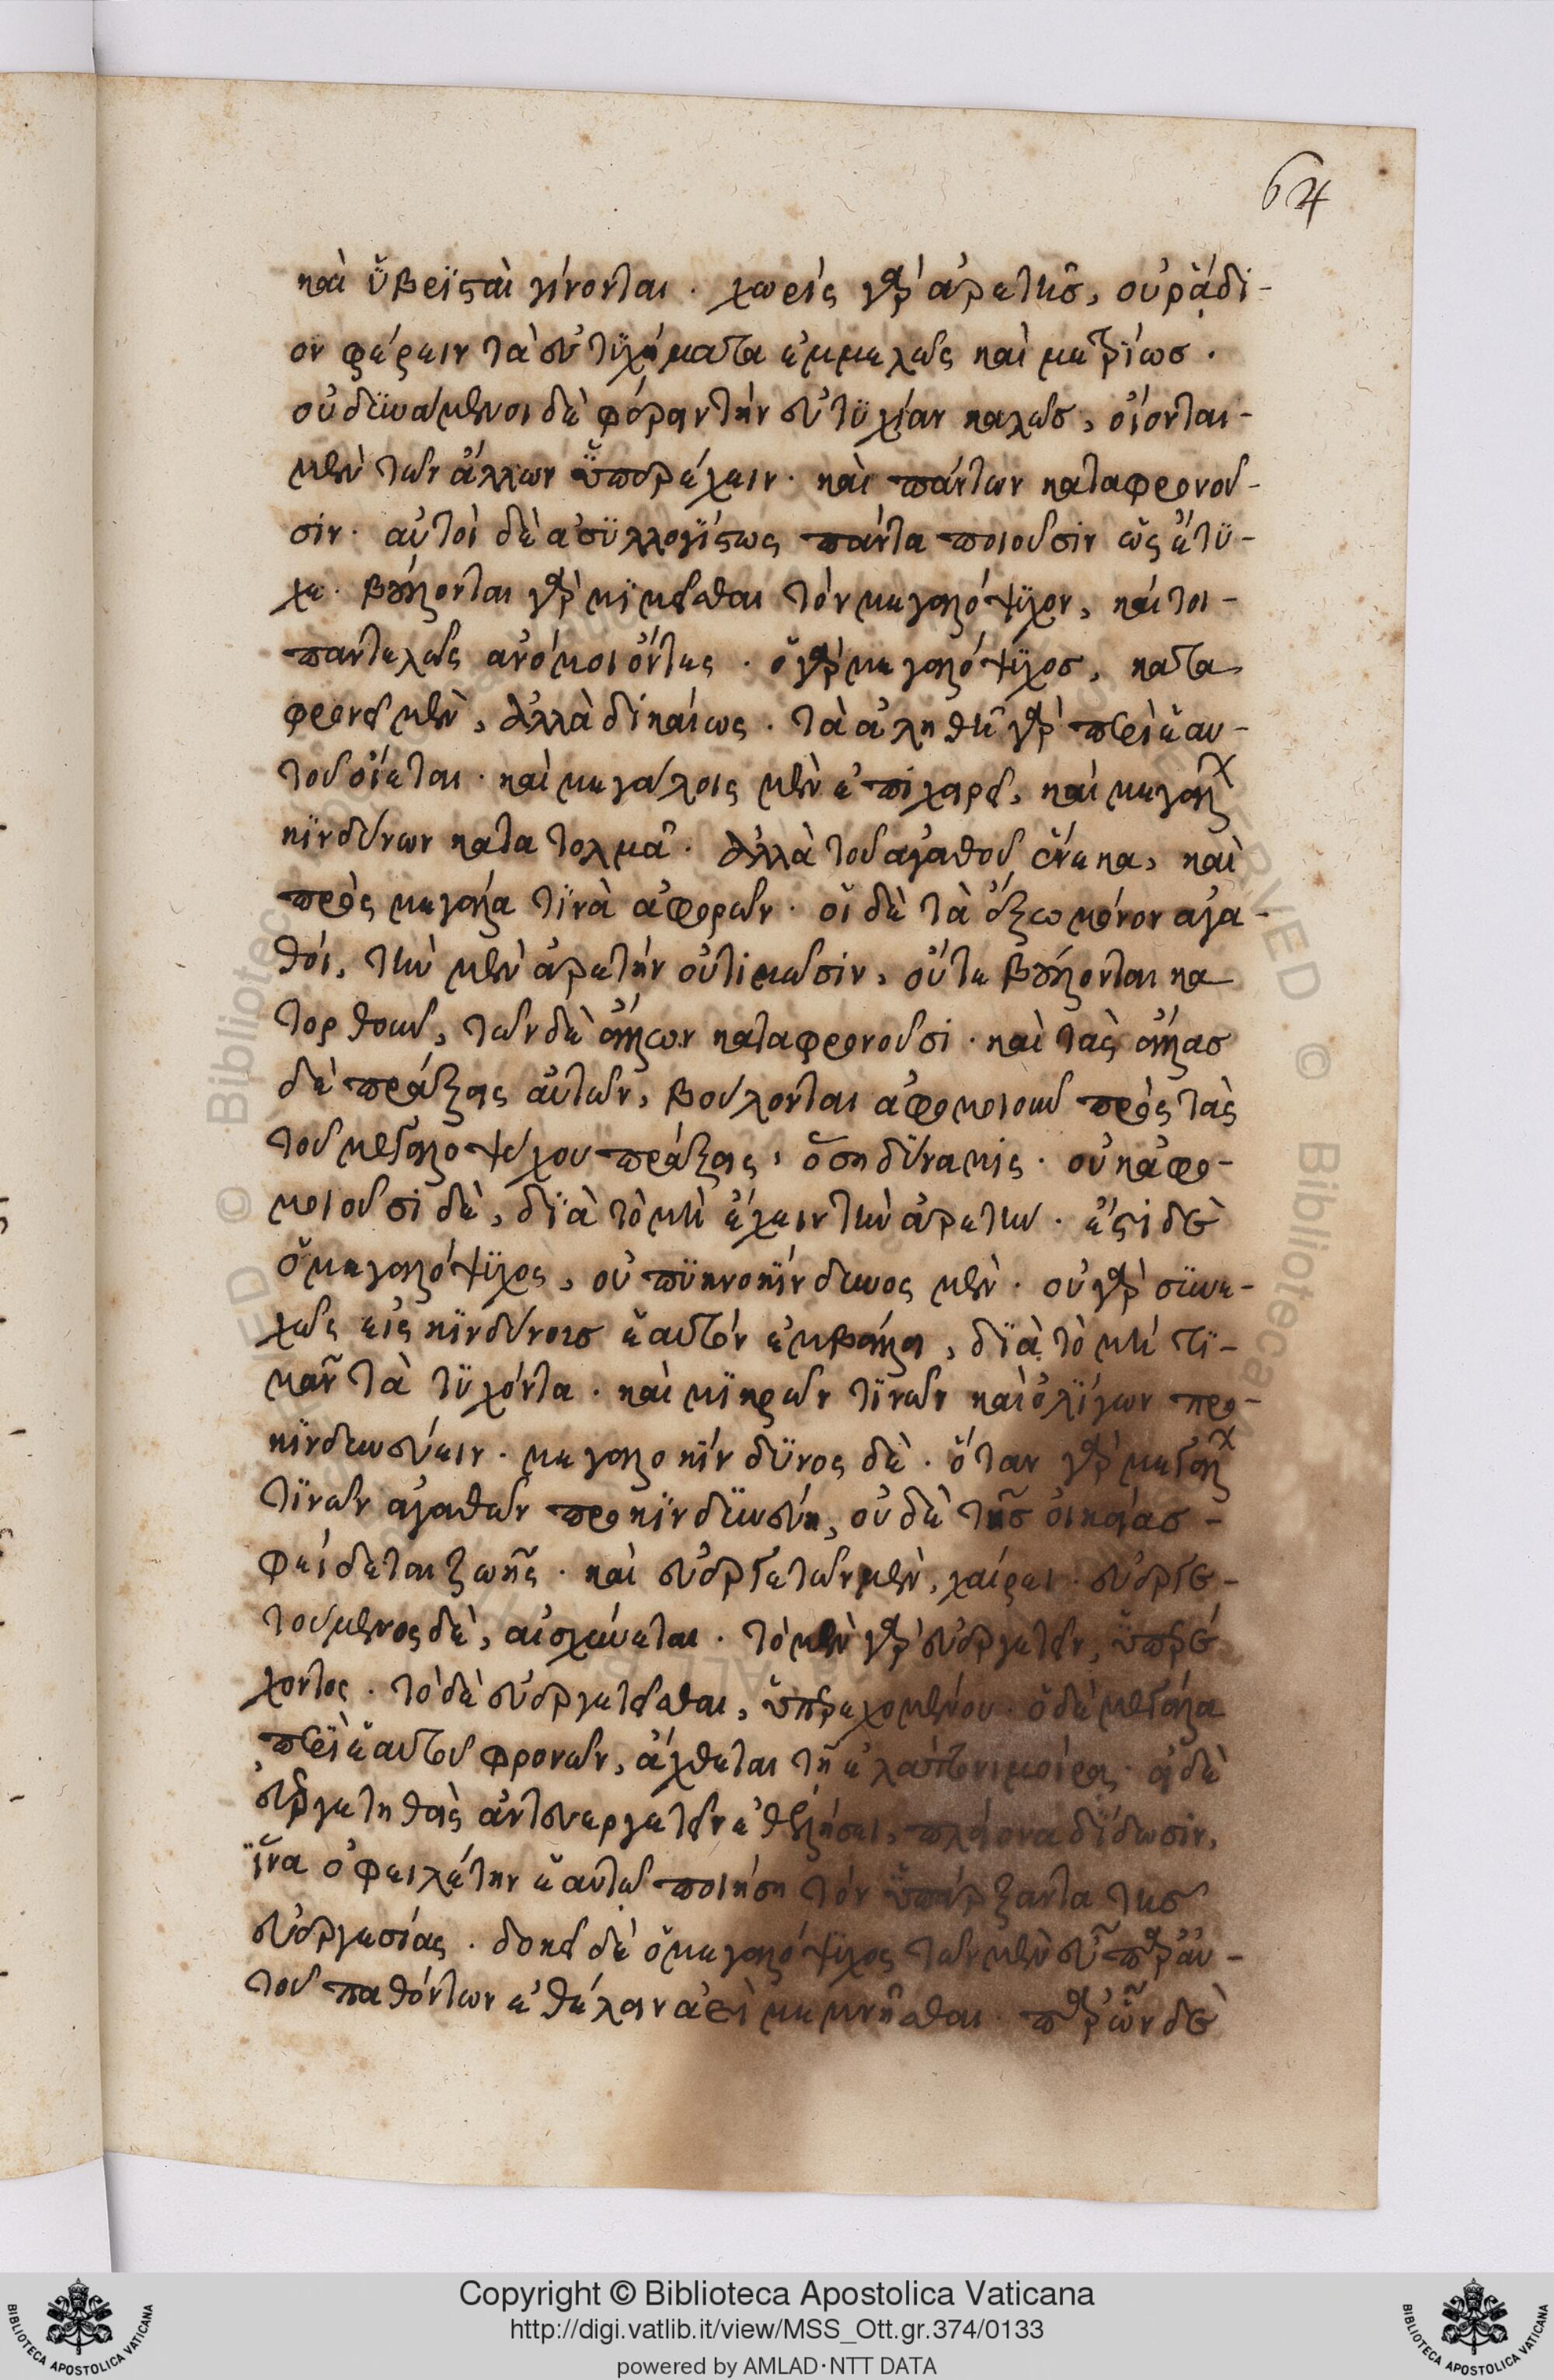 64
καὶ ὕβρϊσταὶ γίνονται · χωρίς γὰρ ἀρετῆσ, οὐ ρᾴδι-
ον φέρειν τὰ εὐτϋχήματα ἐμμελῶς καὶ μετρϊίωσ ·
οὐ δϋνάμενοι δὲ φέρειν τὴν εὐτϋχίαν καλῶσ, οἴονται-
μὲν τῶν ἄλλων ὕπερέχειν · καὶ πάντων καταφρονοῦ-
σιν · αὐτοὶ δὲ ἀσϋλλογΐστως πάντα ποιοῦσιν ὡς ἔτϋ-
χε · βούλονται γὰρ μϊμεῖσθαι τὸν μεγαλόψϋχον, καίτοι-
παντελῶς ἀνόμοιοι ὄντες · ὁ γὰρ μεγαλόψϋχοσ, κατα
φρονεῖ μὲν, ἀλλὰ δικαίως · τὰ ἀληθῆ γὰρ περὶ ἑαυ-
τοῦ οἴεται · καὶ μεγάλοις μὲν ἐπιχειρεῖ, καὶ μεγάλων
κϊνδύνων κατατολμᾶ · ἀλλὰ τοῦ ἀγαθοῦ ἕνεκα, καὶ
πρὸς μεγάλα τϊνὰ ἀφορῶν · οἱ δὲ τὰ ἔξω μόνον ἀγα-
θοὶ, τὴν μὲν ἀρετὴν οὐ τιμῶσιν, οὔτε βούλονται κα
τορθοῦν, τῶν δὲ ἄλλων καταφρονοῦσι · καὶ τὰς ἄλλασ
δὲ πράξεις αὐτῶν, βούλονται ἀφομοιοῦν πρὸς τὰς
τοῦ μεγαλοψύχου πράξεις, ὅση δύναμις · οὐκ ἀφο-
μοιοῦσι δὲ, δϊὰ τὸ μὴ ἔχειν τὴν ἀρετήν · ἔστι δὲ
ὁ μεγαλόψϋχος, οὐ πϋκνοκΐνδυνος μὲν · οὐ γὰρ σϋνε-
χῶς εἰς κϊνδύνοισ ἑαυτὸν ἐμβάλλει, δϊὰ τὸ μὴ τϊ-
μᾶν τὰ τϋχόντα · καὶ μϊκρῶν τϊνῶν καὶ ὀλΐγων προ-
κϊνδυνεύειν · μεγαλοκΐνδϋνος δὲ · ὅταν γὰρ μεγάλων
τϊνῶν ἀγαθῶν προκϊνδϋνεύη, οὐδὲ τῆσ οἰκείασ -
φείδεται ζωῆς · καὶ εὐεργετῶν μὲν, χαίρει · εὐεργε-
τούμενος δὲ, αἰσχύνεται · τὸ μὲν γὰρ εὐεργετεῖν, ὕπερέ
χοντος · τὸ δὲ εὐεργετεῖσθαι, ὕπερεχομένου · ὁ δὲ μεγάλα
περϊὶ ἑαυτοῦ φρονῶν, ἄχθεται τῆ ἐλάττονι μοίρας · εἰ δὲ
εὐεργετηθεὶς ἀντευεργετεῖν ἐθελήσει, πλείονα δΐδωσιν,
ἵνα ὀφειλέτην ἑαυτῶ ποιήση τὸν ὕπάρξαντα τῆσ
εὐεργεσίας · δοκεῖ δὲ ὁ μεγαλόψϋχος τῶν μὲν εὖ παρ' αὐ-
τοῦ παθόντων ἐθέλειν ἀεὶ μεμνῆσθαι · παρ' ὧν δὲ
Copyright © Biblioteca Apostolica Vaticana
http://digi.vatlib.it/view/MSS_Ott.gr.374/0133
powered by AMLAD·NTT DATA